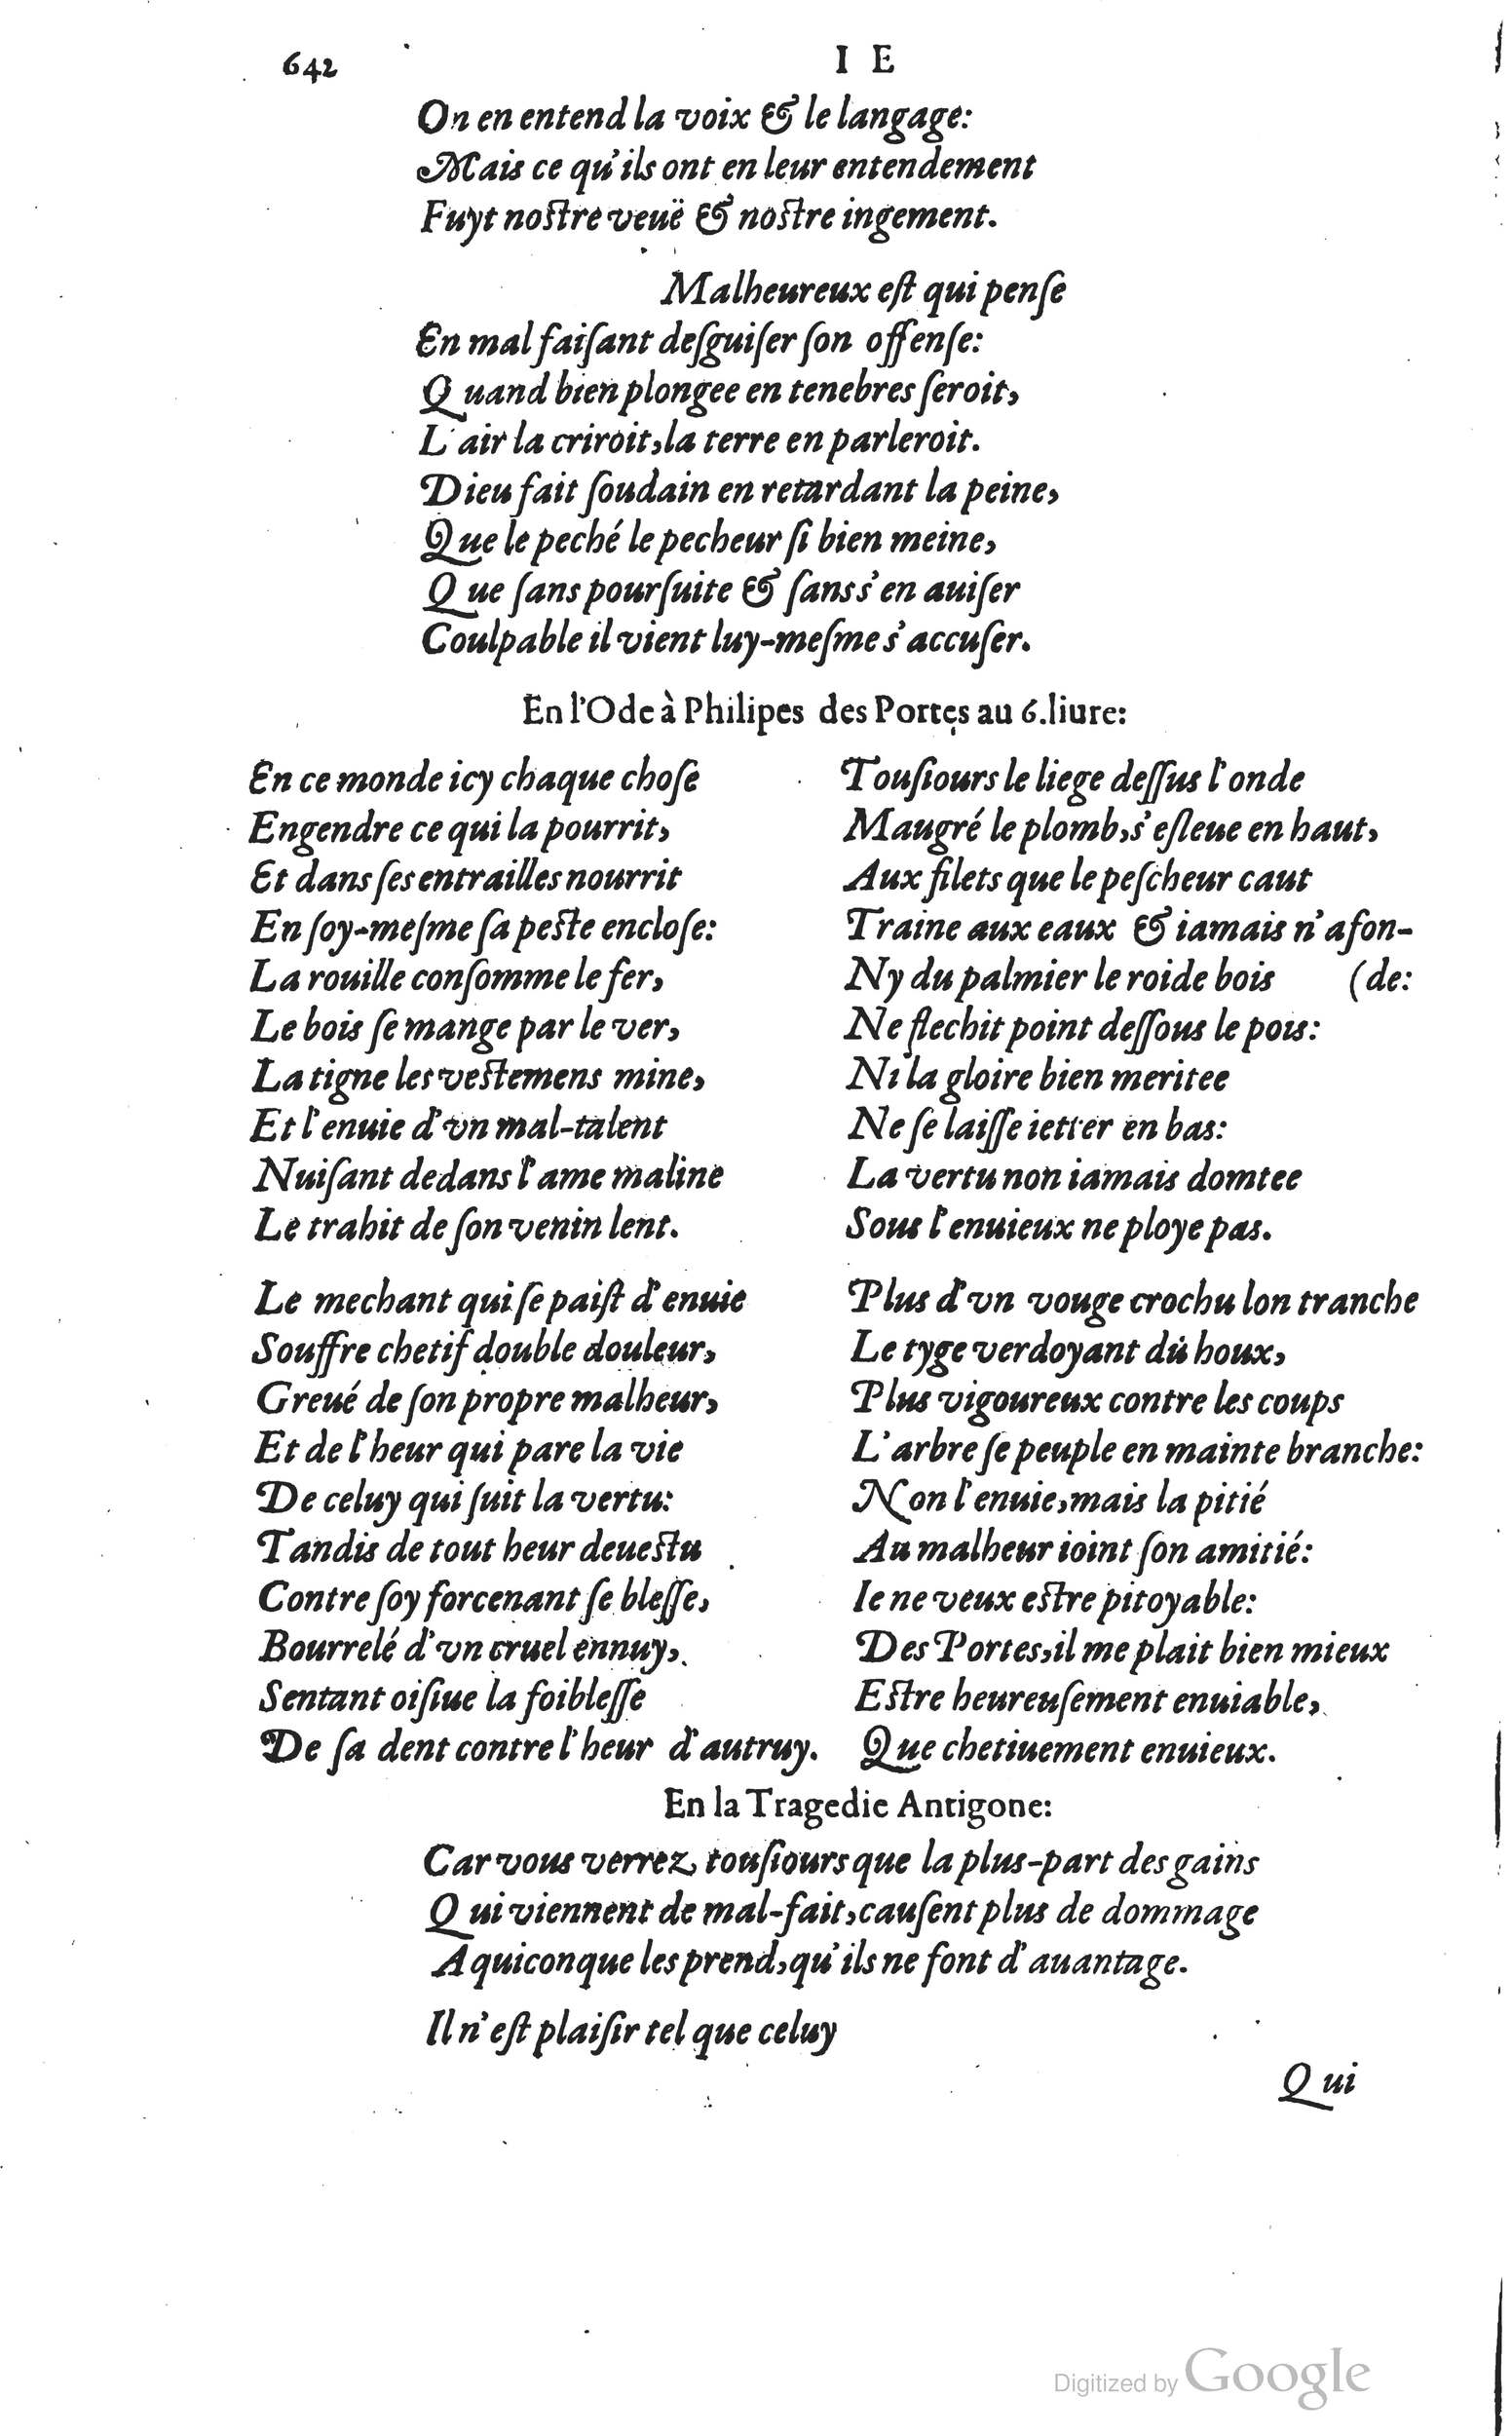 642
I E
On en entend la voix & le langage:
Mais ce qu'ils ont en leur entendement
Fuyt noſtre veuë & noſtre ingement.
Malheureux eſt qui penſe
En mal faiſant deſguiſer ſon offenſe:
Quand bien plongee en tenebres ſeroit,
L'air la criroit, la terre en parleroit.
Dieu fait ſoudain en retardant la peine,
Que le peché le pecheur ſi bien meine,
Que ſans pourſuite & ſans s'en auiſer
Coulpable il vient luy-meſme s'accuſer.
En l'Ode à Philipes des Portes au 6. liure:
En ce monde icy chaque choſe
Engendre ce qui la pourrit,
Et dans ſes entrailles nourrit
En ſoy-meſme ſa peſte encloſe:
La rouille conſomme le fer,
Le bois ſe mange par le ver,
La tigne les veſtemens mine,
Et l'enuie d'vn mal-talent
Nuiſant dedans l'ame maline
Le trahit de ſon venin lent.
Le mechant qui ſe paiſt d'enuie
Souffre chetif double douleur,
Greué de ſon propre malheur,
Et de l'heur qui pare la vie
De celuy qui ſuit la vertu:
Tandis de tout heur deueſtu
Contre ſoy forcenant ſe bleſſe,
Bourrelé d'vn cruel ennuy,
Sentant oiſiue la foibleſſe
De ſa dent contre l'heur d'autruy.
Touſiours le liege deſſus l'onde
Maugré le plomb, s'eſleue en haut,
Aux filets que le peſcheur caut
Traine aux eaux & iamais n'afon-
Ny du palmier le roide bois (de:
Ne flechit point deſſous le pois:
Ni la gloire bien meritee
Ne ſe laiſſe ietter en bas:
La vertu non iamais domtee
Sous l'enuieux ne ploye pas.
Plus d'vn vouge crochu lon tranche
Le tyge verdoyant du houx,
Plus vigoureux contre les coups
L'arbre ſe peuple en mainte branche:
Non l'enuie, mais la pitié
Au malheur ioint ſon amitié:
Ie ne veux eſtre pitoyable:
Des Portes, il me plait bien mieux
Eſtre heureuſement enuiable,
Que chetiuement enuieux.
En la Tragedie Antigone:
Car vous verrez touſiours que la plus-part des gains
Qui viennent de mal-fait, cauſent plus de dommage
A quiconque les prend, qu'ils ne font d'auantage.
Il n'eſt plaiſir tel que celuy
Qui
Digitized by Google